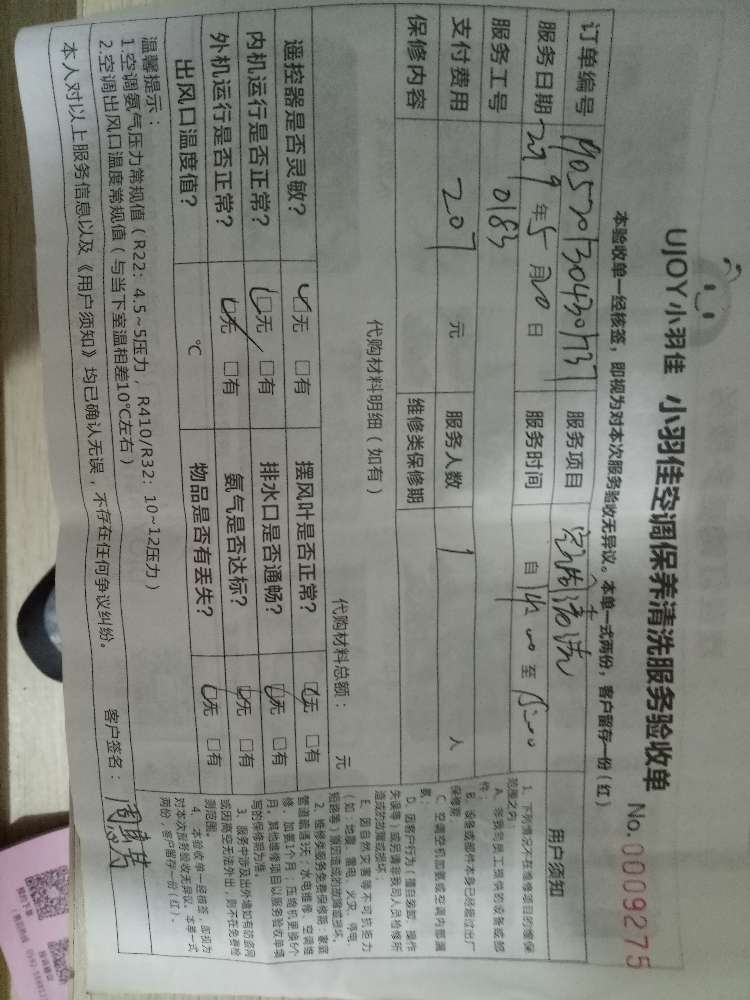 UJOY小羽佳 小羽佳空调保养清洗服务验收单
No.0009275
本验收单一经核签，即视为对本次服务验收无异议。本单一式两份，客户留存一份（红）
订单编号 服务项目
服务日期 年5月20日 服务时间 自 至
服务工号 0183
支付费用 207 元 服务人数 1 人
保修内容 维修类保修期
代购材料明细（如有） 代购材料总额： 元
遥控器是否灵敏？ 无 有 摆风叶是否正常？ 无 有
内机运行是否正常？ 无 有 排水口是否通畅？ 无 有
外机运行是否正常？ 无 有 氨气是否达标？ 无 有
出风口温度值？ ℃ 物品是否有丢失？ 无 有
温馨提示：
1.空调氨气压力常规值（R22：4.5~5压力，R410/R32：10~12压力）
2.空调出风口温度常规值（与当下室温相差10℃左右）
本人对以上服务信息以及《用户须知》均已确认无误，不存在任何争议纠纷。
客户签名：
用户须知
1、下列情况不在维修项目的维保
范围之内：
A、非我司员工提供的设备或部
件；
B、设备或部件本身已经超过出厂
保修期
C、空调空机加氨或空调内部漏
氨。
D、因客户行为（擅自拆卸、操作
失误等）或另请非我司人员检修所
造成的故障或损坏；
E、因自然灾害等不可抗拒力
（如：地震、雷电、火灾、停电、
短路等）原因造成的故障或损坏。
2、维修类服务免费保修期：家庭
管道疏通3天；水电维修、空调维
修、加氨1个月；压缩机更换6个
月，其他维修项目以服务验收单填
写的保修期为准。
3、服务中涉及出外墙如有防盗网
或因高空无法外出，则不在免费检
测范围。
4、本验收单一经核签，即视为
对本次服务验收无异议，本单一式
两份，客户留存一份（红）。